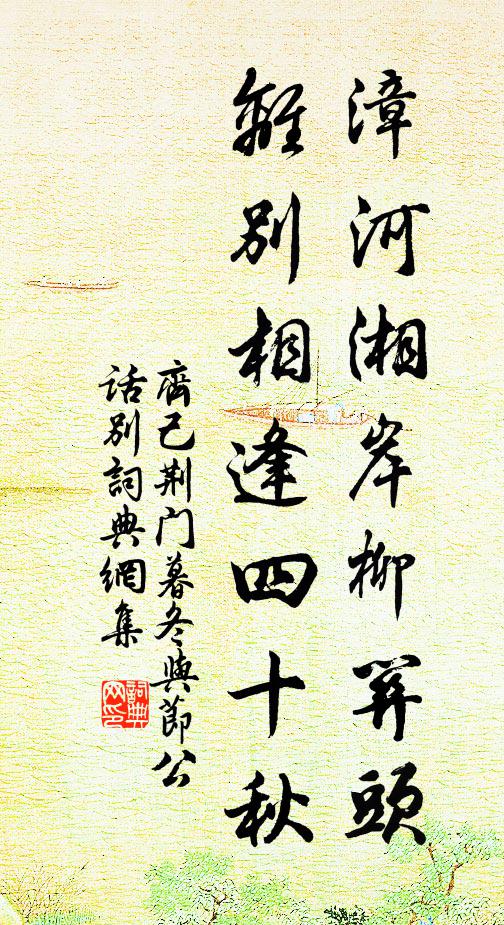 漳河湘岸柳關頭
離別相逢四十秋
齊己荆门暮冬與節公
话别詞典網集
詞典网印